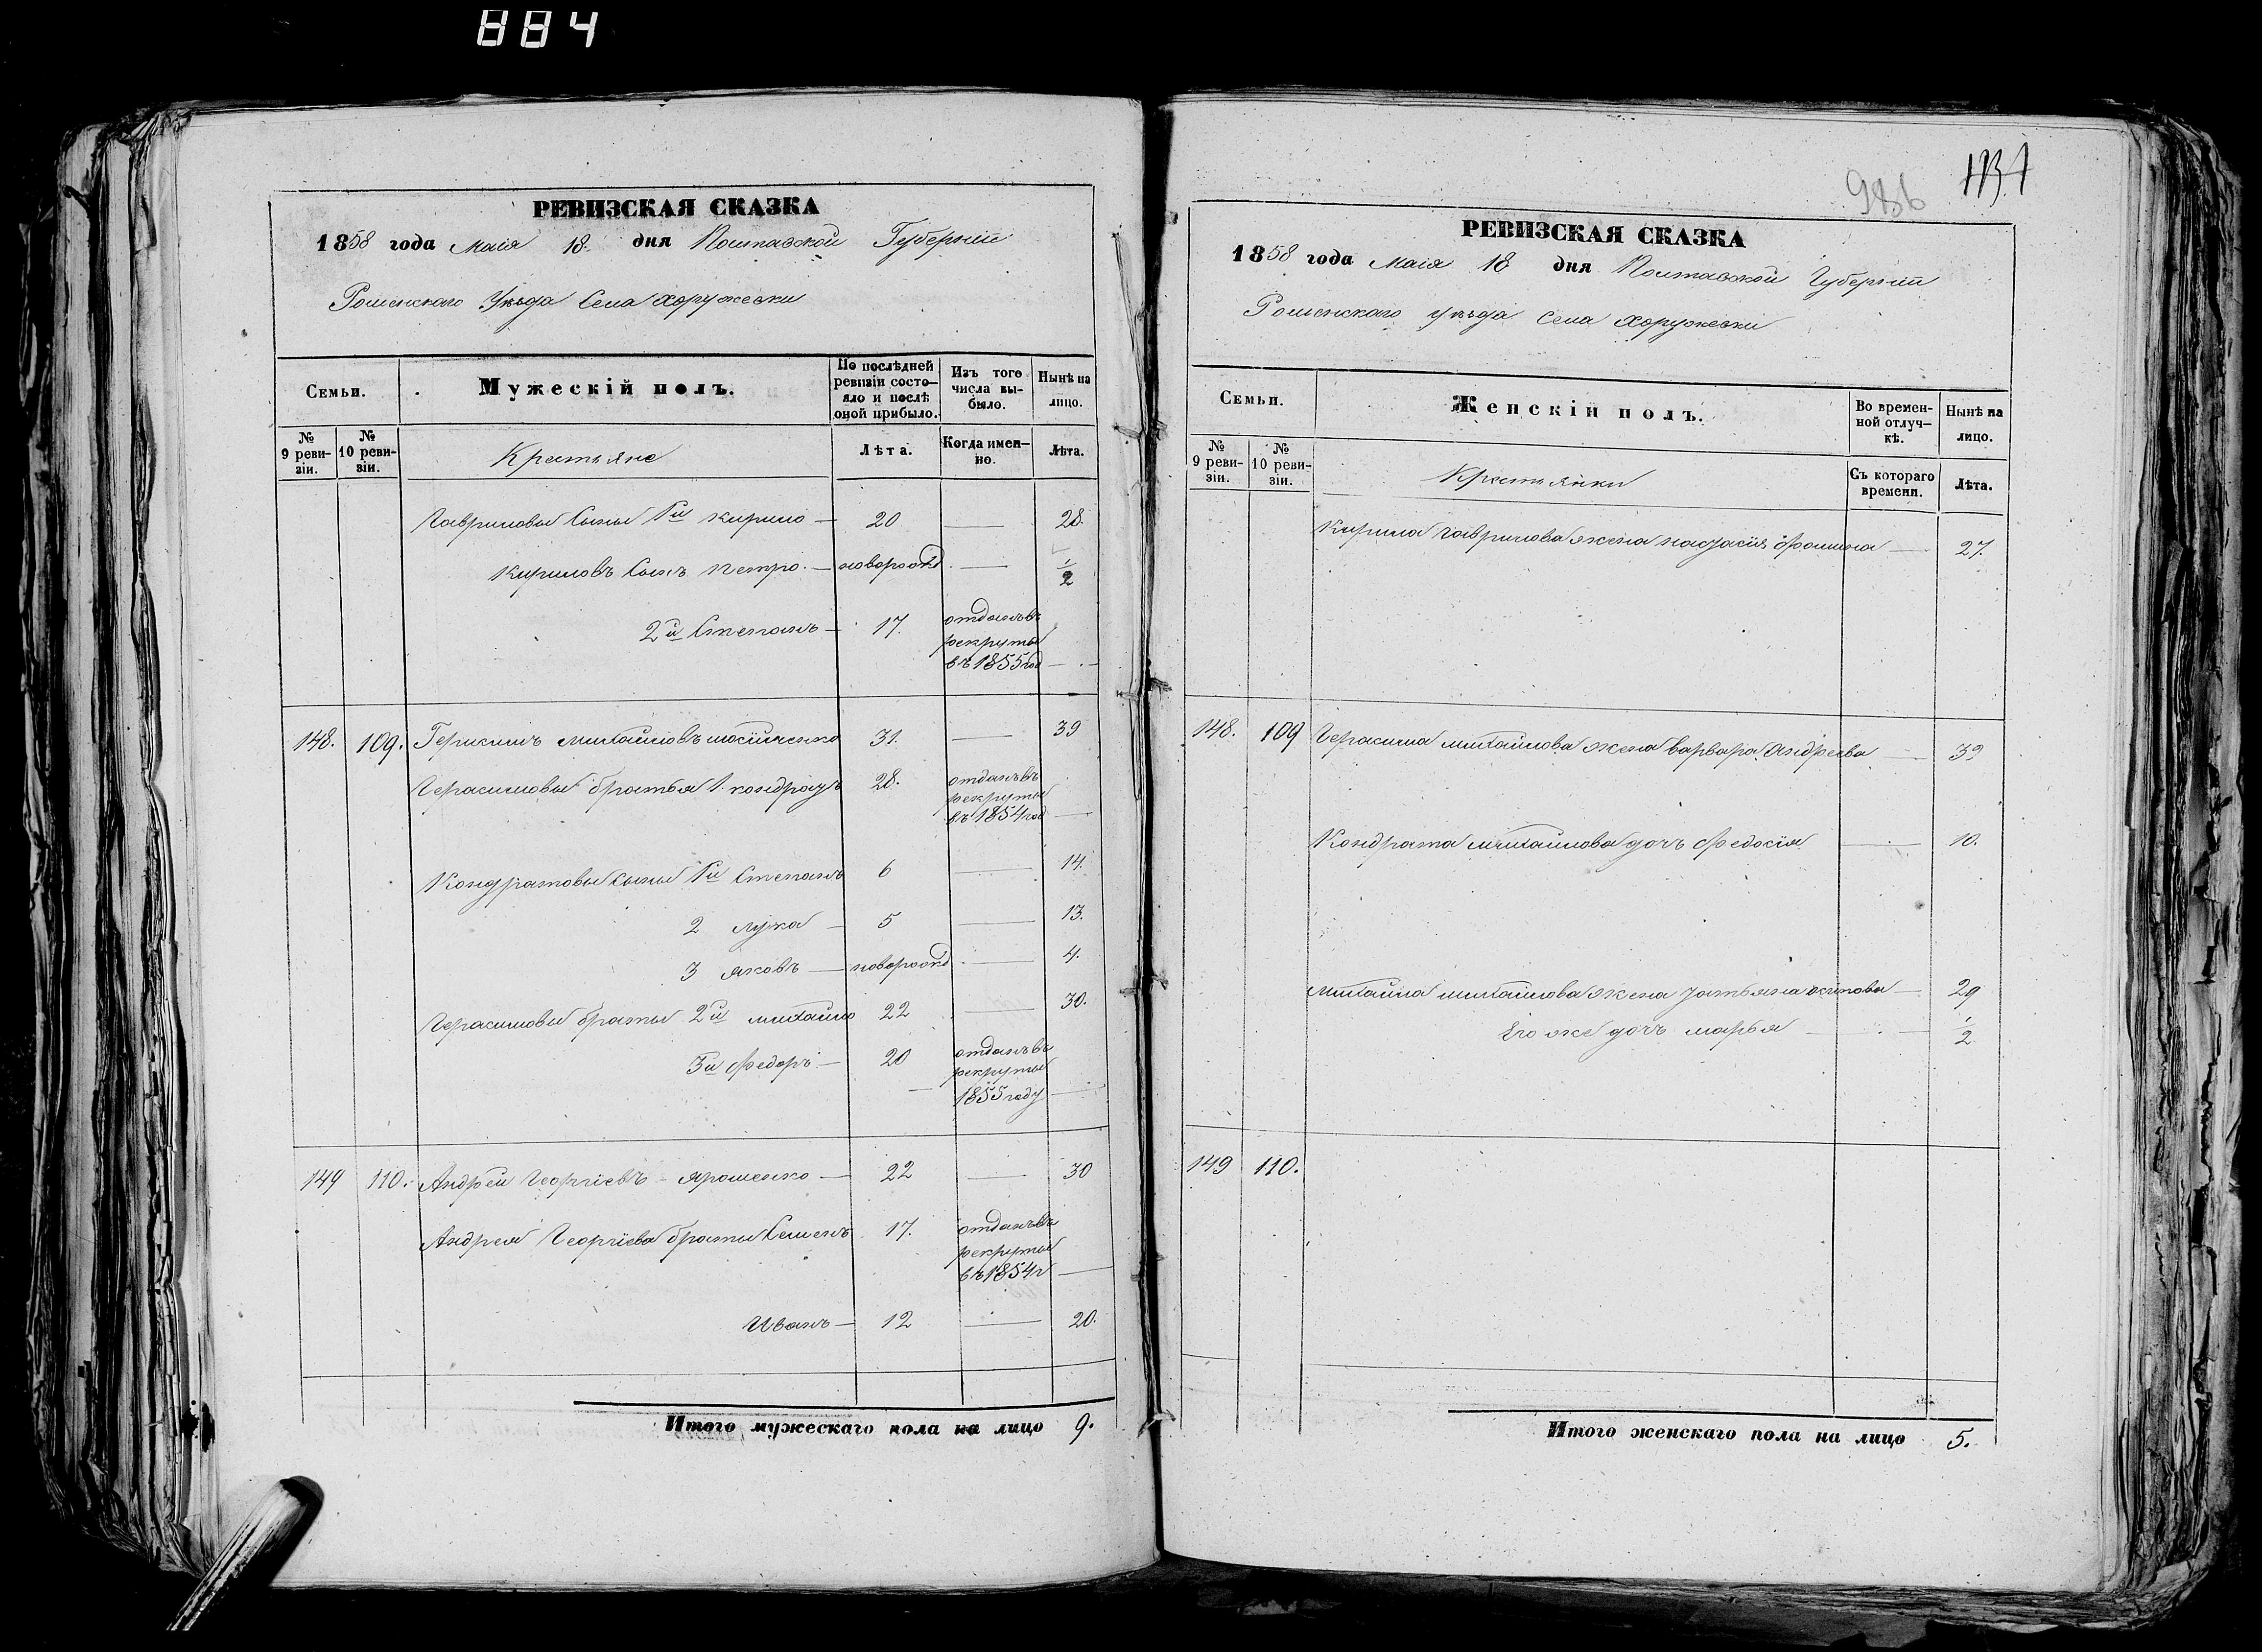 884
РЕВИЗСКАЯ СКАЗКА
1858 года Маія 18 дня Полтавской Губерніи
Роменскаго Уѣзда Села Хоружевки
Семьи.
Мужескій полъ.
По послѣдней ревизіи состо-
яло и послѣ оной прибыло.
Изъ того числа вы-
было.
Нынѣ на лицо.
№ 9 реви-
зіи.
№ 10 реви-
зіи.
Крестьяне
Лѣта.
Когда имен-
но.
Лѣта.
Гавриловы Сыны 1й Кирило — 20 — 28.
Кириловъ Сынъ Петро. — новорожд — 1/2
2й Степанъ — 17. отданъ въ
рекруты
въ 1855 год —
148. 109. Михайловъ 31. — 39
Герасимовы братья 1. Кондратъ 28. отданъ въ
рекруты
въ 1854 год —
Кондратовы Сыны 1й Степанъ 6 — 14.
2 Лука — 5 — 13.
3 Яковъ — новорожд — 4.
Герасимовы браты 2й Михайло 22 — 30.
3й Федоръ — 20 отданъ въ
рекруты
1855 году —
149 110. Андрей Георгіевъ Ярошенко — 22 — 30
Андрея Георгіева браты Семенъ 17. отданъ въ
рекруты
въ 1854 г —
Иванъ — 12 — 20.
Итого мужескаго пола на лицо 9.
986
РЕВИЗСКАЯ СКАЗКА
1858 года Маія 18 дня Полтавской Губерніи
Роменскаго уѣзда Села Хоружевки
Семьи.
Женскій полъ.
Во времен-
ной отлуч-
кѣ.
Нынѣ на лицо.
№ 9 реви-
зіи.
№ 10 реви-
зіи.
Крестьянки
Съ котораго времени.
Лѣта.
Кирила Гаврилова жена Настасія Фомина — 27.
148. 109 Герасима Михайлова жена Варвара Андреева — 39
Кондрата Михайлова дочь Федосія — 10.
Михайла Михайлова жена Татьяна — 29
Его же дочь Марья — 1/2
149 110.
Итого женскаго пола на лицо 5.